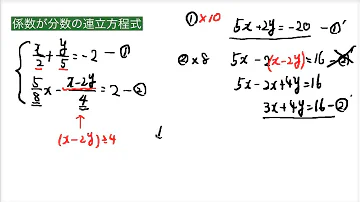 係数が分数の連立方程式
x/2 + y/5 = -2 -①
5/8 x - (x-2y)/4 = 2 -②
(x-2y)÷4
①×10
5x+2y=-20 -①′
②×8 5x-2(x-2y)=16
5x-2x+4y=16
3x+4y=16 -②′